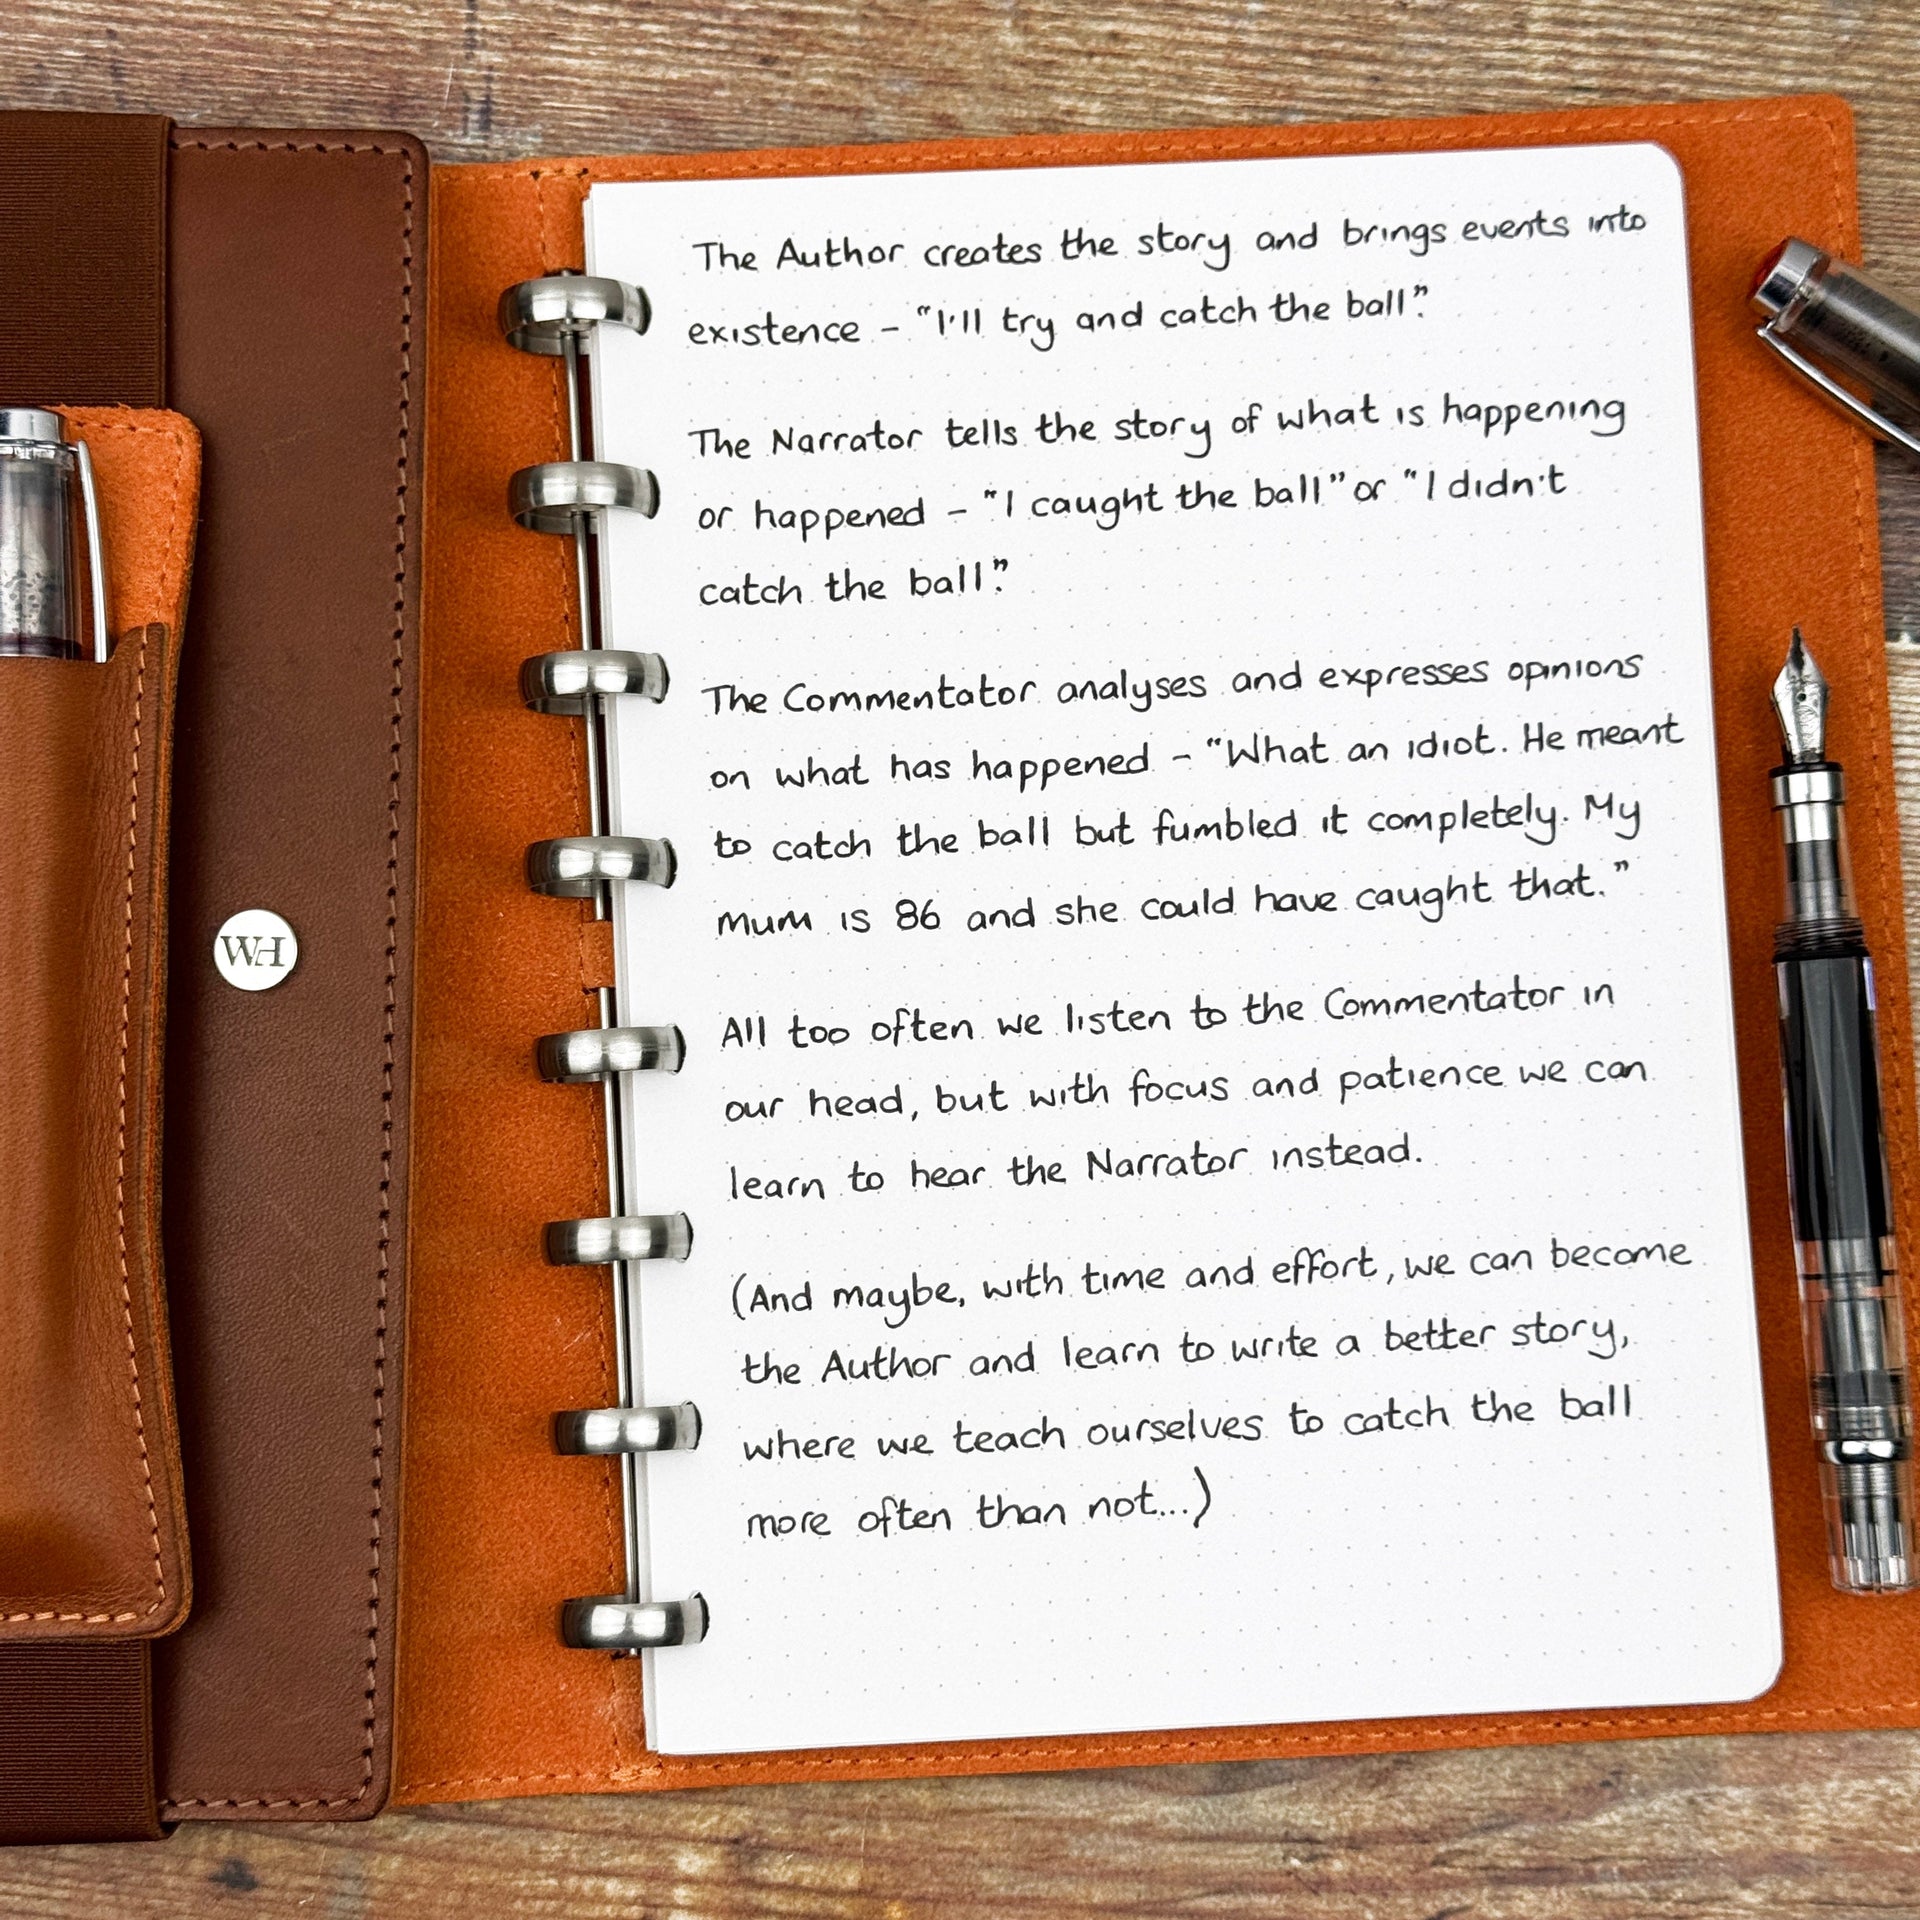 The Author creates the story and brings events into
existence – "I'll try and catch the ball".
The Narrator tells the story of what is happening
or happened – "I caught the ball" or "I didn't
catch the ball".
The Commentator analyses and expresses opinions
on what has happened – "What an idiot. He meant
to catch the ball but fumbled it completely. My
Mum is 86 and she could have caught that."
All too often we listen to the Commentator in
our head, but with focus and patience we can
learn to hear the Narrator instead.
(And maybe, with time and effort, we can become
the Author and learn to write a better story,
where we teach ourselves to catch the ball
more often than not...)
WH